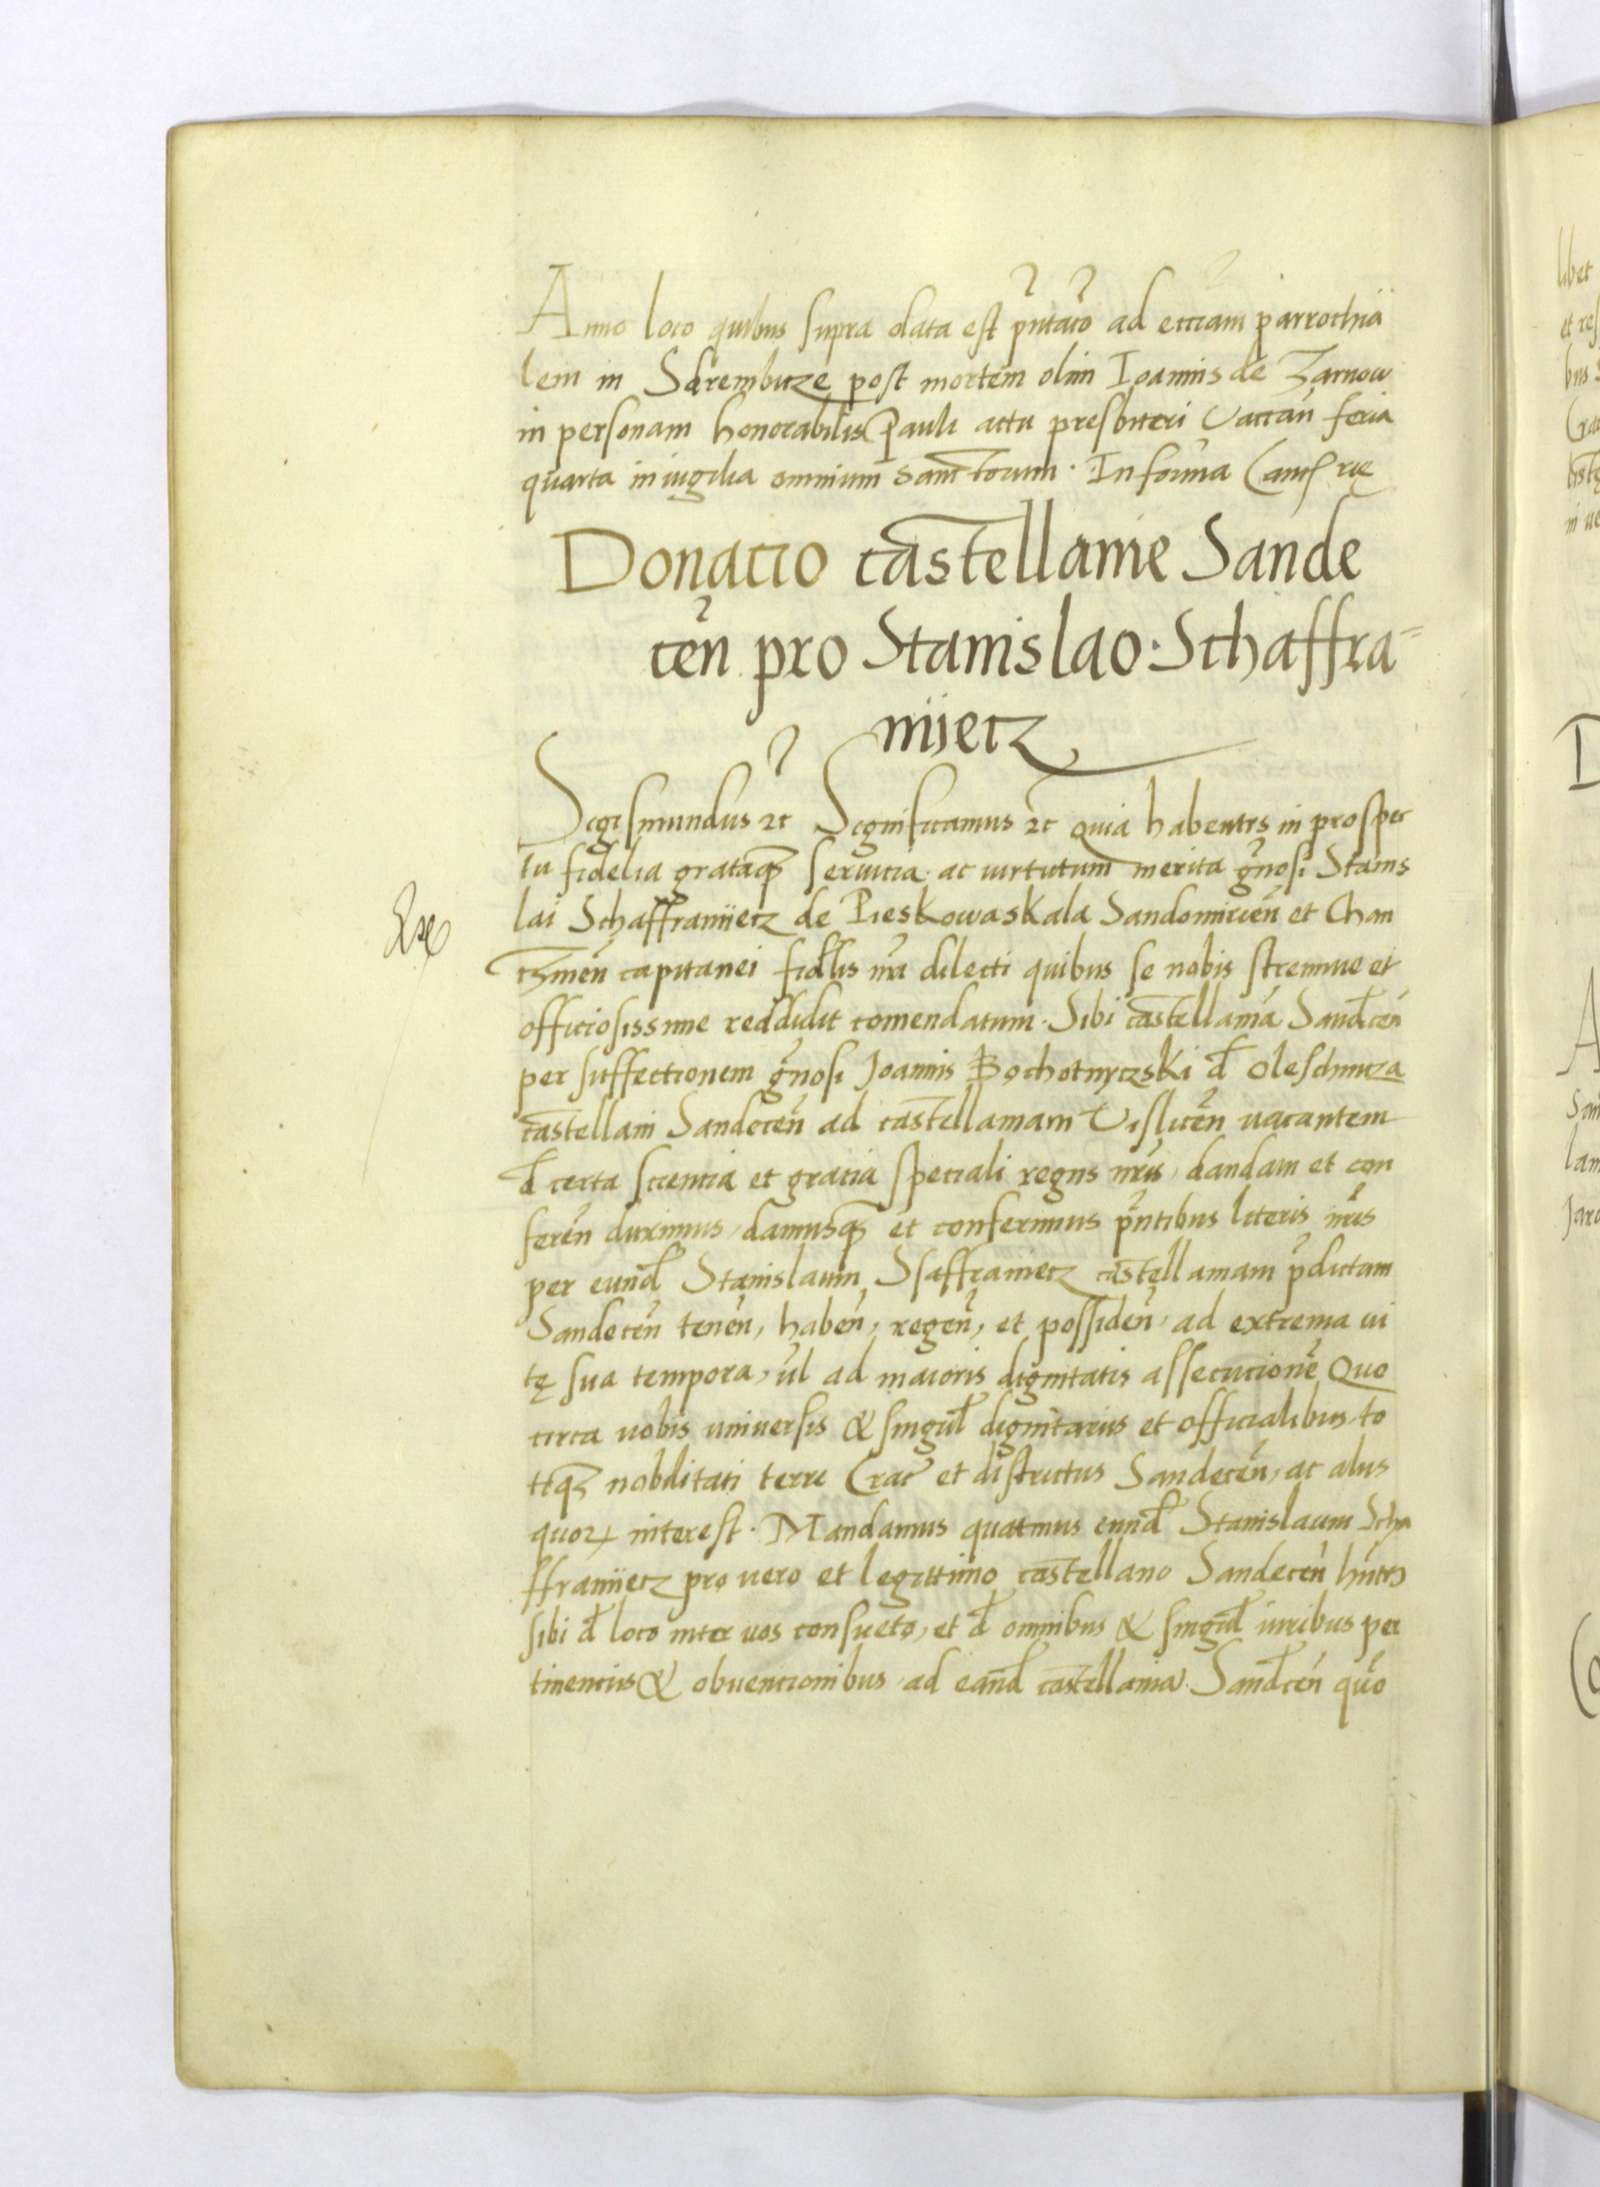 Anno loco quibus supra data est pñtacõ ad ecciam parrochiã
lem in Skrembicze post mortem olim Ioannis de Zarnow
in personam honorabilis Pauli actu presbiteri vaccan̄ feria
quarta in iugilia omnium sanctorum. In forma Canc̃rie
Donacio castellanie Sande
ceñ pro Stanislao Schaffra=
nijecz
Sigismundus ꝛc Significamus ꝛc quia habentes in prospec
tu fidelia grataq̃ seruicia ac uirtutum merita gñosi Stanis
lai Schaffranijecz de Pieskowaskala Sandomirien̄ et Chan
czinen̄ capitanei fidelis nr̄i dilecti quibus se nobis strennue et
officiosissime reddidit comendatum. Sibi castellaniã Sandeceñ
per suffectionem gñosi Joannis Bochotnyczski de Oleschnicza
castellani Sandeceñ ad castellaniam Vislicen̄ vacantem
de certa sciencia et gratia speciali regiis nr̄is dandam et con
feren̄ duximus, damusq̃ et conferimus pñtibus literis nr̄is
per eund̄ Stanislaum Schaffraniecz castellaniam p̄dictam
Sandeceñ tenen̄, haben̄, regen̄, et possiden̄, ad extrema ui
tę sua tempora, ul̄ ad maioris dignitatis assecucionē Quo
circa vobis universis & singul̄ dignitariis et officialibus, to
tiq̃ nobilitati terre Crac̄ et districtus Sandeceñ, ac aliis
quoꝝ interest. Mandamus quatinus eund̄ Stanislaum Scha
ffranijecz pro uero et legittimo castellano Sandeceñ h̃ntes
sibi de loco inter uos consueto, et de omnibus & singul̄ iuribus per
tinenciis & obuencionibus ad eand̄ castellaniã Sandeceñ quõ